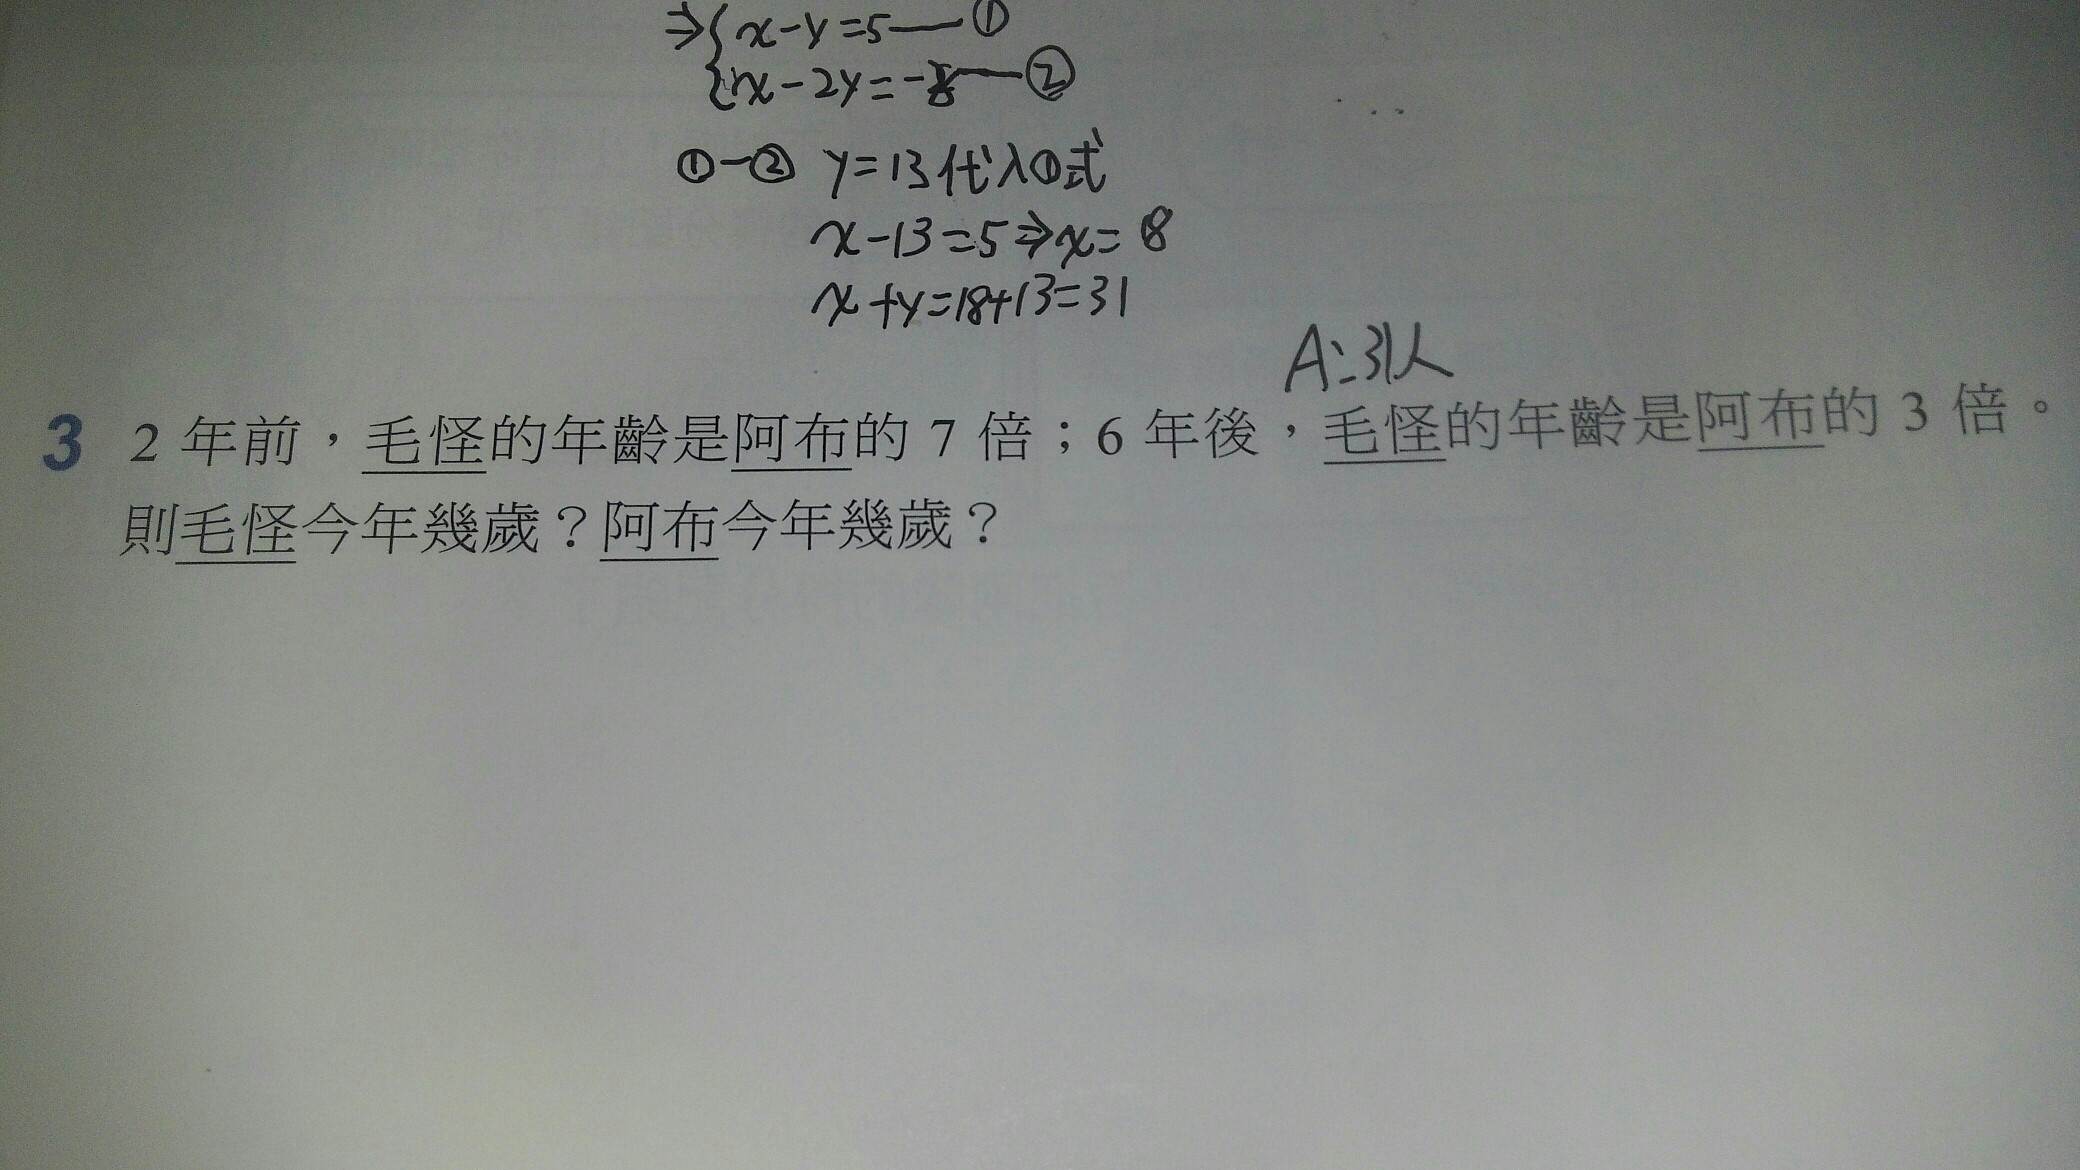 ⇒{x-y=5——①
{x-2y=-8——②
①-② y=13代入①式
x-13=5⇒x=18
x+y=18+13=31
A:31人
3 2年前，毛怪的年齡是阿布的7倍；6年後，毛怪的年齡是阿布的3倍。
則毛怪今年幾歲？阿布今年幾歲？